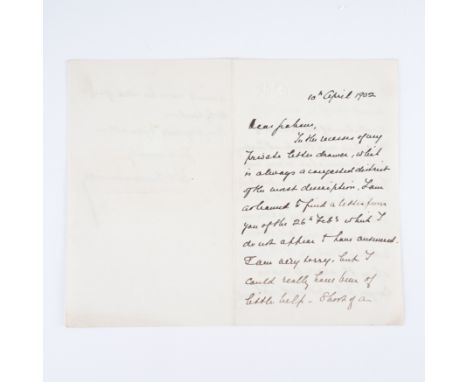 10th April 1902
Dear Graham,
In the recesses of my
private letter drawer, which
is always a congested district
of the worst description, I am
ashamed to find a letter from
you of the 26th Feby which I
do not appear to have answered.
I am very sorry, but I
could really have been of
little help. Short of a